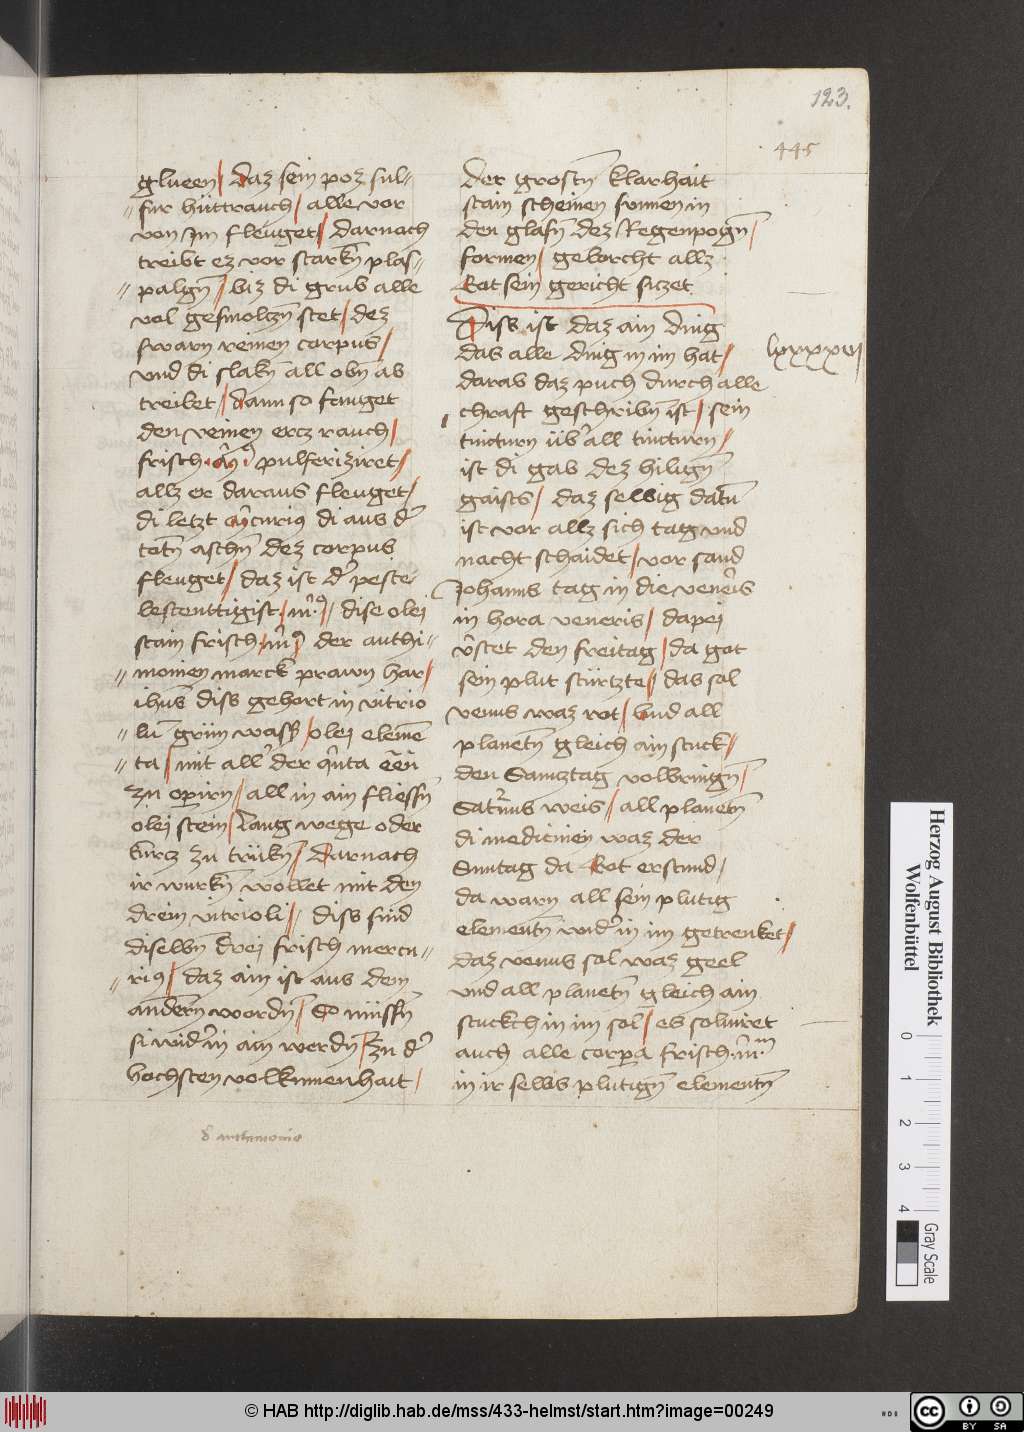 123.
445
glueen / daz sein poz sul-
fur hüttrauch / alle vor
von Jm fleuget / darnach
treibt ez vor starkñ plas-
palgñ / biz di grub alle
vol gesmolczñ stet / dez
swarn reinen corpus /
vnd di slakñ all obñ ab
treibet / dann so fanget
den reinen ercz rauch /
frisch · pulferiziret /
allz er daraus fleuget /
di letzt m̃curiꝰ di aus d̕
totñ aschñ dez corpus
fleuget / daz ist d̕ peste
bestenttigist · m̃ꝰ / dise olei
stain frisch m̃ꝰ der anthi-
moinen marck prawn har /
ihus diss gehort in vitrio
lũ grün wass̕ / olei elemẽ
ta / mit all̕ der q̃nta ẽẽñ
zu operirn / all in ain fliessñ
olei stein / lang wege oder
kurcz zu trükñ / Darnach
ir wurkñ wollet mit den
drein vitrioli / diss sind
diselbñ drei frisch mercu-
riꝰ / daz ain ist aus dem
andern wordñ / So müssñ
si wid̕ in ain werdñ / zu d̕
hochsten volkumenhait /
δ antimonio
der grostñ klarhait
stain scheinen sunnen in
den glasñ dez Regenpogñ /
formen / geborcht allz
Got sein gericht siczet
Diss ist daz ain ding
das alle ding in im hat /
lxxxxvij
darab daz puch durch alle
chraft geschribñ ist / sein
tincturn üb̕ all tincturn /
ist di gab dez hiligñ
gaists / daz selbig datũ
ist vor allz sich tag vnd
nacht schaidet / vor sand
Johanns tag in die veneris
in hora veneris / dapei
v̕stet den freitag / da got
sein plut stürtzte / das sol
venus waz rot / vnd all
planetñ gleich ain stuck /
den Samztag volbringñ /
Sat̕nus weis / all planetñ
di medicinen waz der
Sunntag da Got erstund /
da warn all sein plutig
elementñ wid̕ in im getrenket /
daz venus sol waz geel
vnd all planetñ gleich ain
stuckch in im sol / es soluiret
auch alle corpora frisch · m̃ ·
in ir selbs plutigñ elementñ
Herzog August Bibliothek
Wolfenbüttel
0 1 2 3 4
Gray Scale
© HAB http://diglib.hab.de/mss/433-helmst/start.htm?image=00249
HAB
cc BY SA